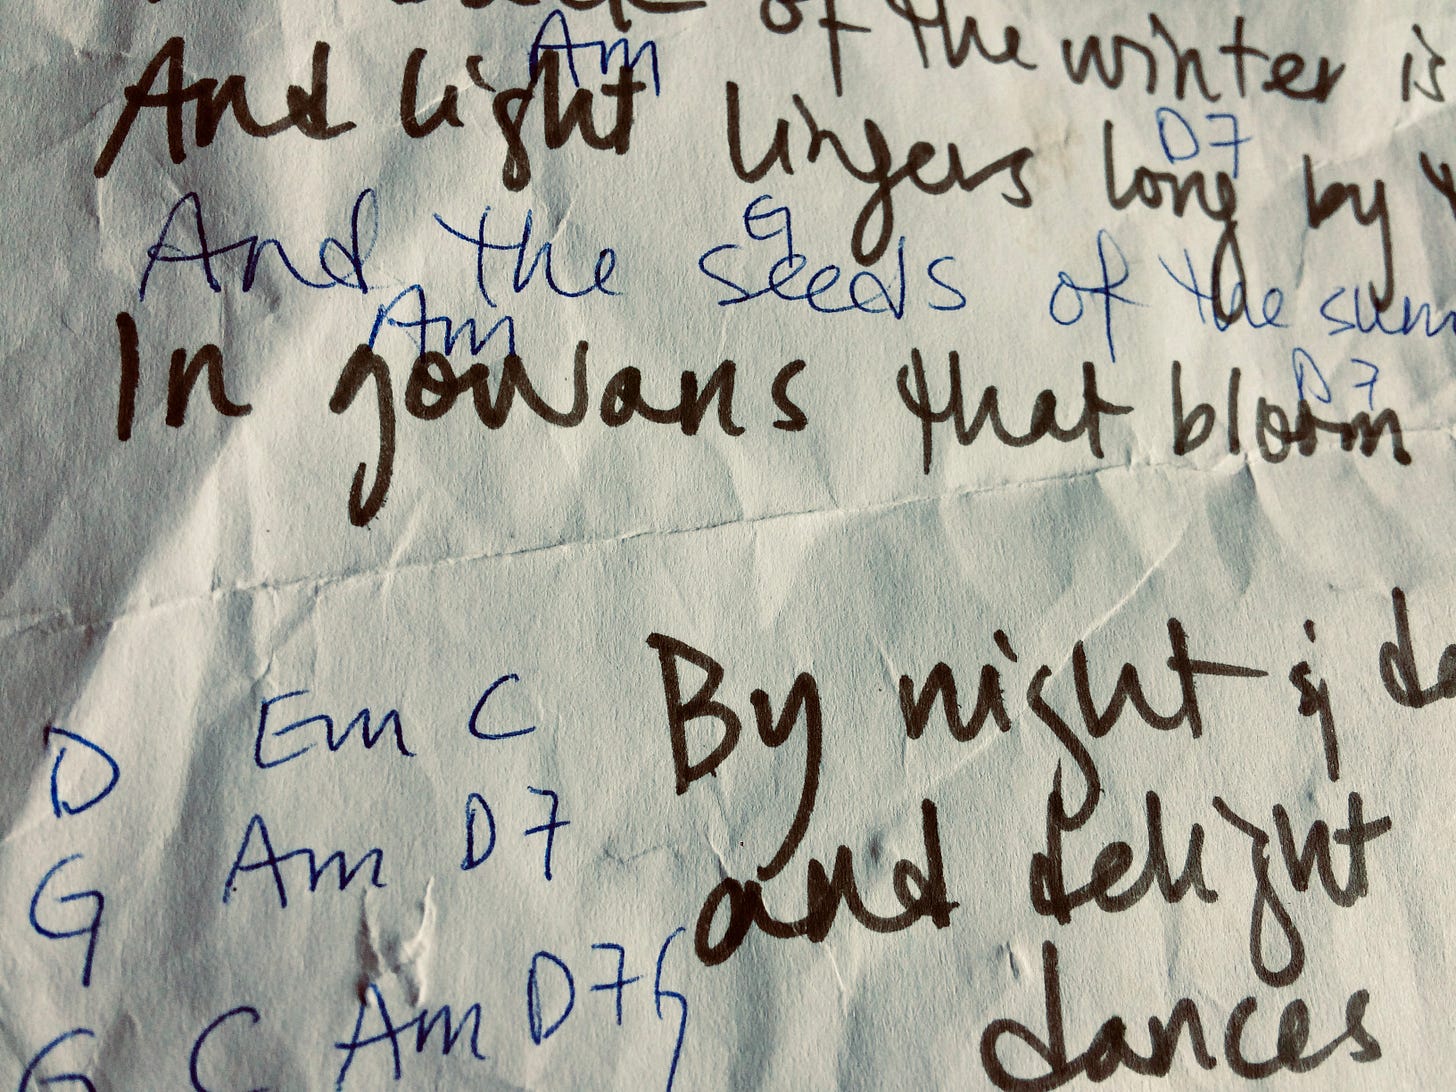 of the winter is
Am
And light lingers long by
D7
G
And the seeds of the
Am
D7
In gowans that bloom
By night &
D Em C
and delight
G Am D7
dances
G C Am D7 G